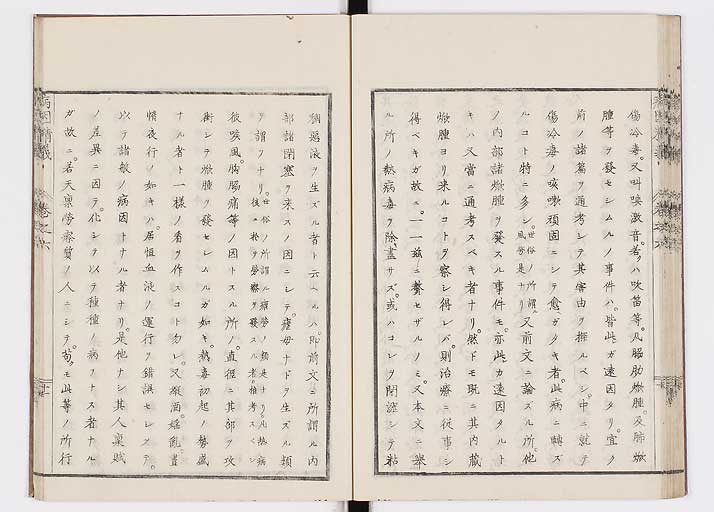 傷冷毒。又叫喚激音。若クハ吹笛等。凡脇肋焮腫。及肺焮
腫等ヲ發セシムルノ事件ハ。皆此カ遠因タリ。宜ク
前ノ諸篇ヲ通考シテ其害由ヲ推ルベシ。中ニ就テ
傷冷毒ノ咳嗽頑固ニシテ愈ガタキ者。此病ニ轉ズ
ルコト特ニ多シ。世俗ノ所謂風勞是ナリ又前文ニ論ズル所。他
ノ内部諸焮腫ヲ發スル事件モ。亦此カ遠因タルト
キハ又當ニ通考スベキ者ナリ。然ドモ既ニ其内藏
焮腫ヨリ來ルコトヲ察シ得レバ。則治療ニ從事シ
得ベキガ故ニ。一一玆ニ贅セザルノミ。又本文ニ舉
ル所ノ熱病毒ヲ除盡サズ。或ハコレヲ閉澁シテ粘
稠惡液ヲ生ズル者ト云ヘルハ。即前文ニ所謂ル内
部諸閉塞ヲ來スノ因ニシテ。瘡毋ナドヲ生ズル類
ヲ謂フナリ。世俗ノ所謂ル瘧勞ノ類是ナリ。凡熱病後ニ於テ勞瘵ヲ發スル者。推考スベシ
彼咳風。胸脇痛等ノ因トスル所ノ。直徑ニ其部ヲ攻
衝シテ焮腫ヲ發セシムルガ如キ。熱毒初起ノ勢盛
ナル者ト一樣ノ看ヲ作スコト勿レ。又嗜酒。婬亂。晝
惰夜行ノ如キハ。居恒血液ノ運行ヲ錯誤セシメテ。
以テ諸般ノ病因トナル者ナリ。是他ナシ其人稟賦
ノ差異ニ因テ。化シテ以テ種種ノ病ヲナス者ナル
ガ故ニ。若天稟勞瘵質ノ人ニシテ。苟モ此等ノ所行
病因精義
卷之六